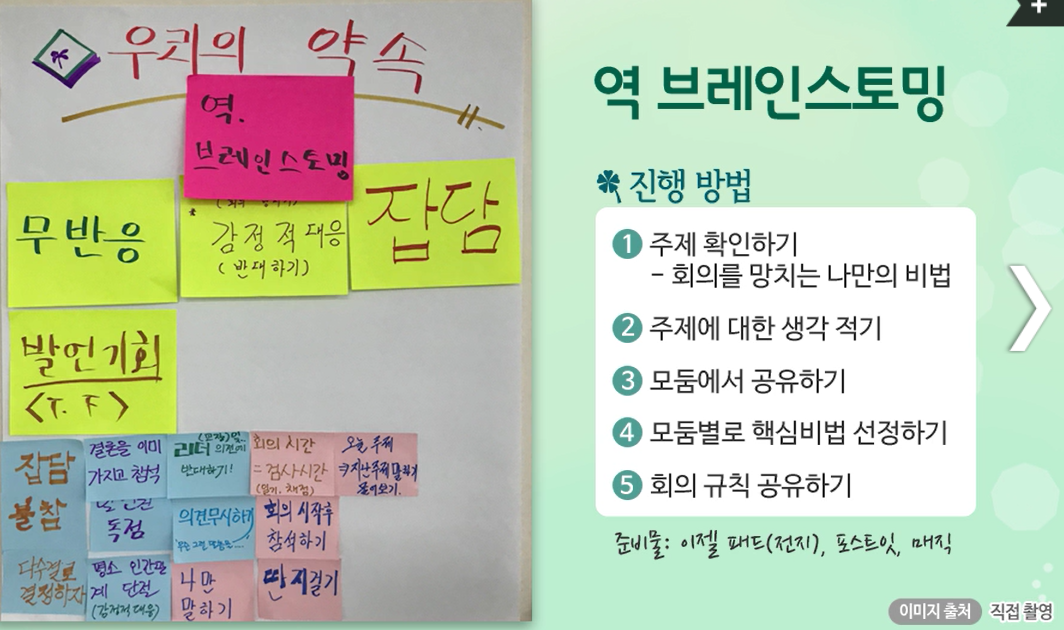 우리의 약속
역.
브레인스토밍
무반응
감정적 대응
(반대하기)
잡담
발언기회
<T. F>
잡담
불참
다수결로
결정하자
결론을 이미
가지고 참석
독점
평소 인간관
계 단절
(감정적 대응)
리더
반대하기!
의견무시하기
나만
말하기
회의 시간
= 검사시간
(일기, 채점)
회의 시작후
참석하기
딴지걸기
오늘 주제
지난주제 말하기
역 브레인스토밍
진행 방법
1 주제 확인하기
- 회의를 망치는 나만의 비법
2 주제에 대한 생각 적기
3 모둠에서 공유하기
4 모둠별로 핵심비법 선정하기
5 회의 규칙 공유하기
준비물: 이젤 패드(전지), 포스트잇, 매직
이미지 출처 직접 촬영